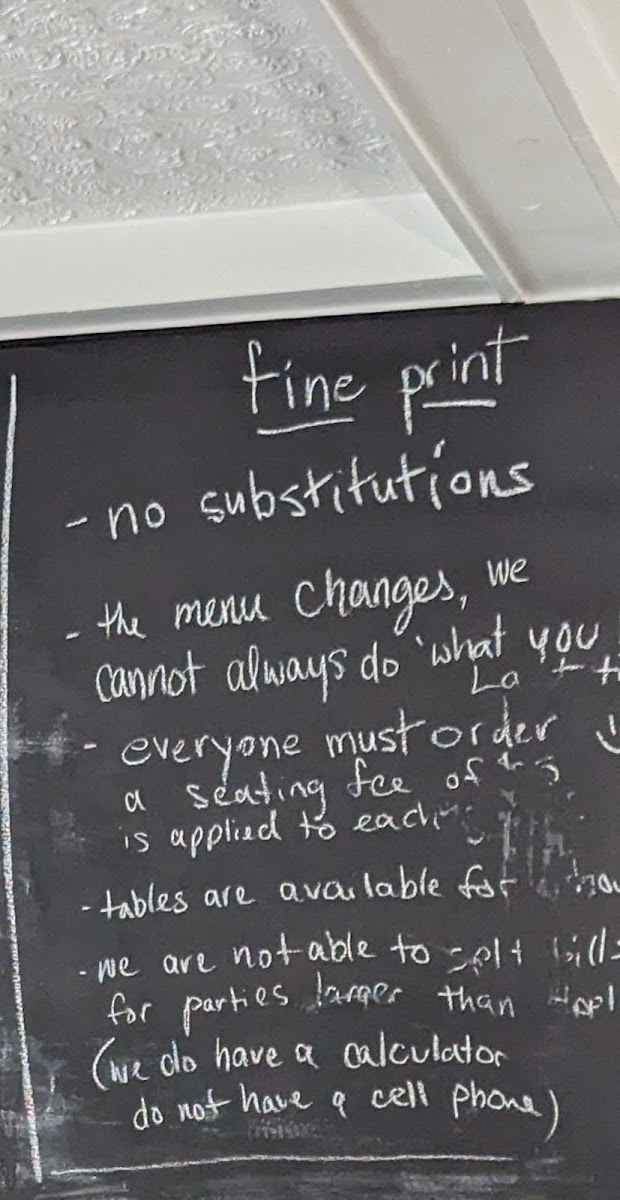 fine print
- no substitutions
- the menu changes, we
cannot always do "what you
- everyone must order
a seating fee of
is applied to each
- tables are available for
- we are not able to split bills
for parties larger than
(we do have a calculator
do not have a cell phone)